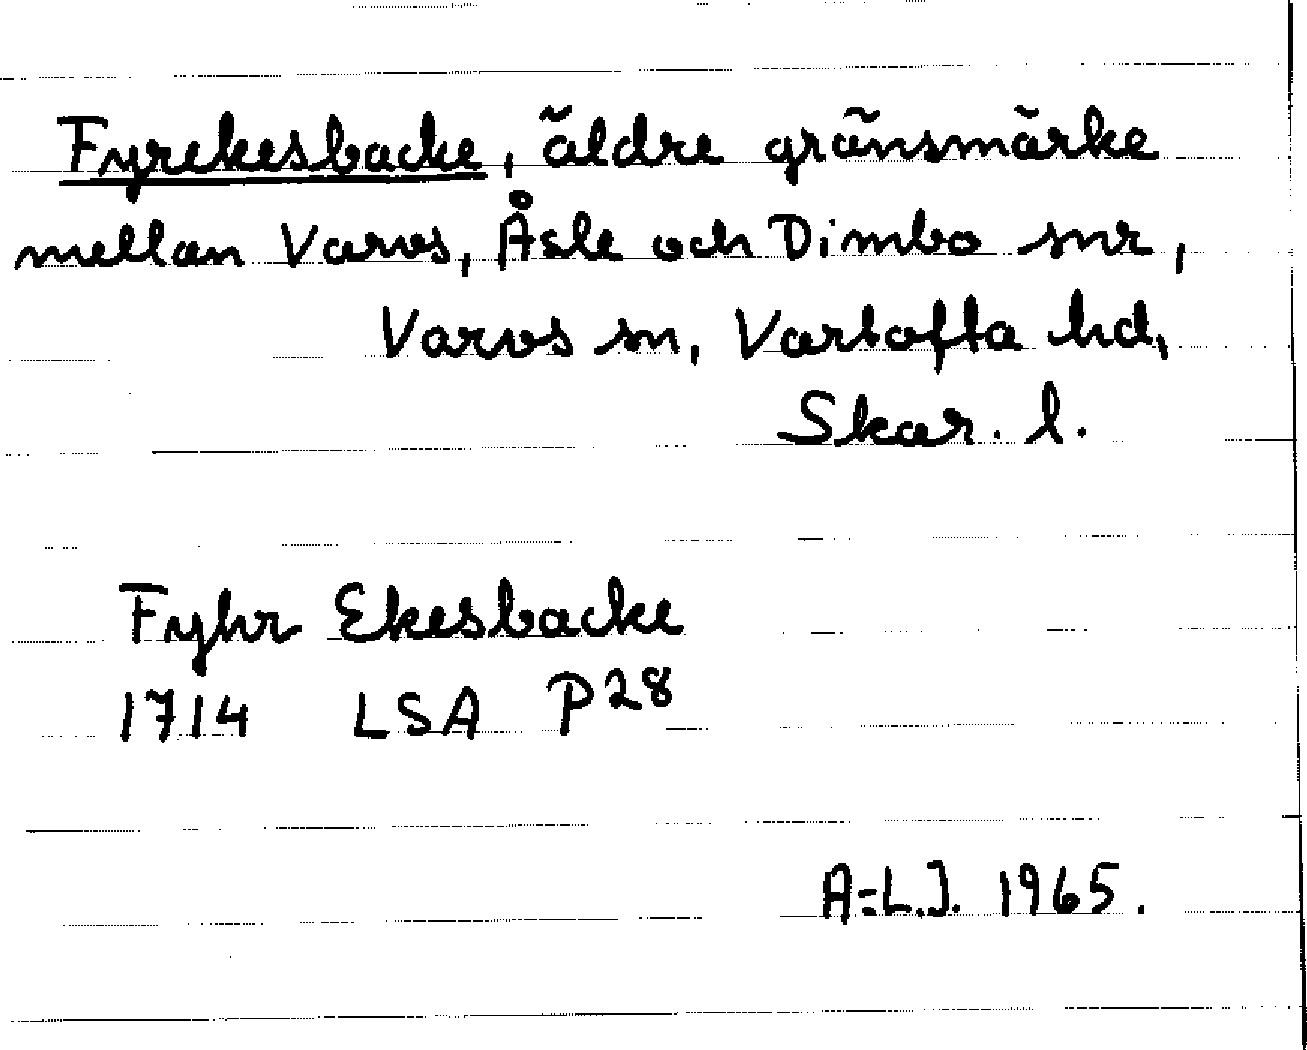 Fyrekesbacke, äldre gränsmärke
mellan Varvs, Åsle och Dimbo snr,
Varvs sn, Vartofta hd,
Skar. l.
Fyhr Ekesbacke
1714 LSA P28
A-L.J. 1965.